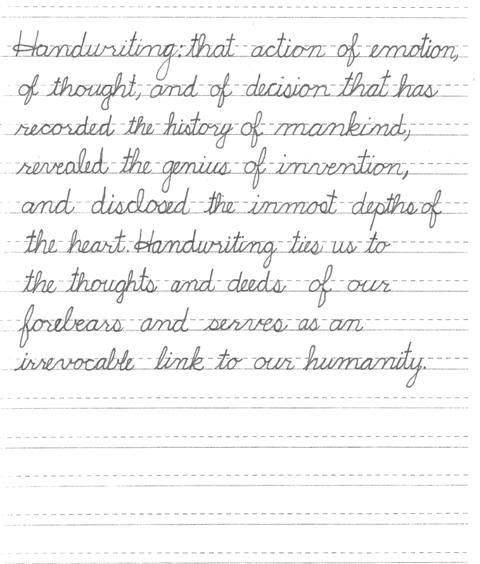 Handwriting: that action of emotion,
of thought, and of decision that has
recorded the history of mankind,
revealed the genius of invention,
and disclosed the inmost depths of
the heart. Handwriting ties us to
the thoughts and deeds of our
forebears and serves as an
irrevocable link to our humanity.